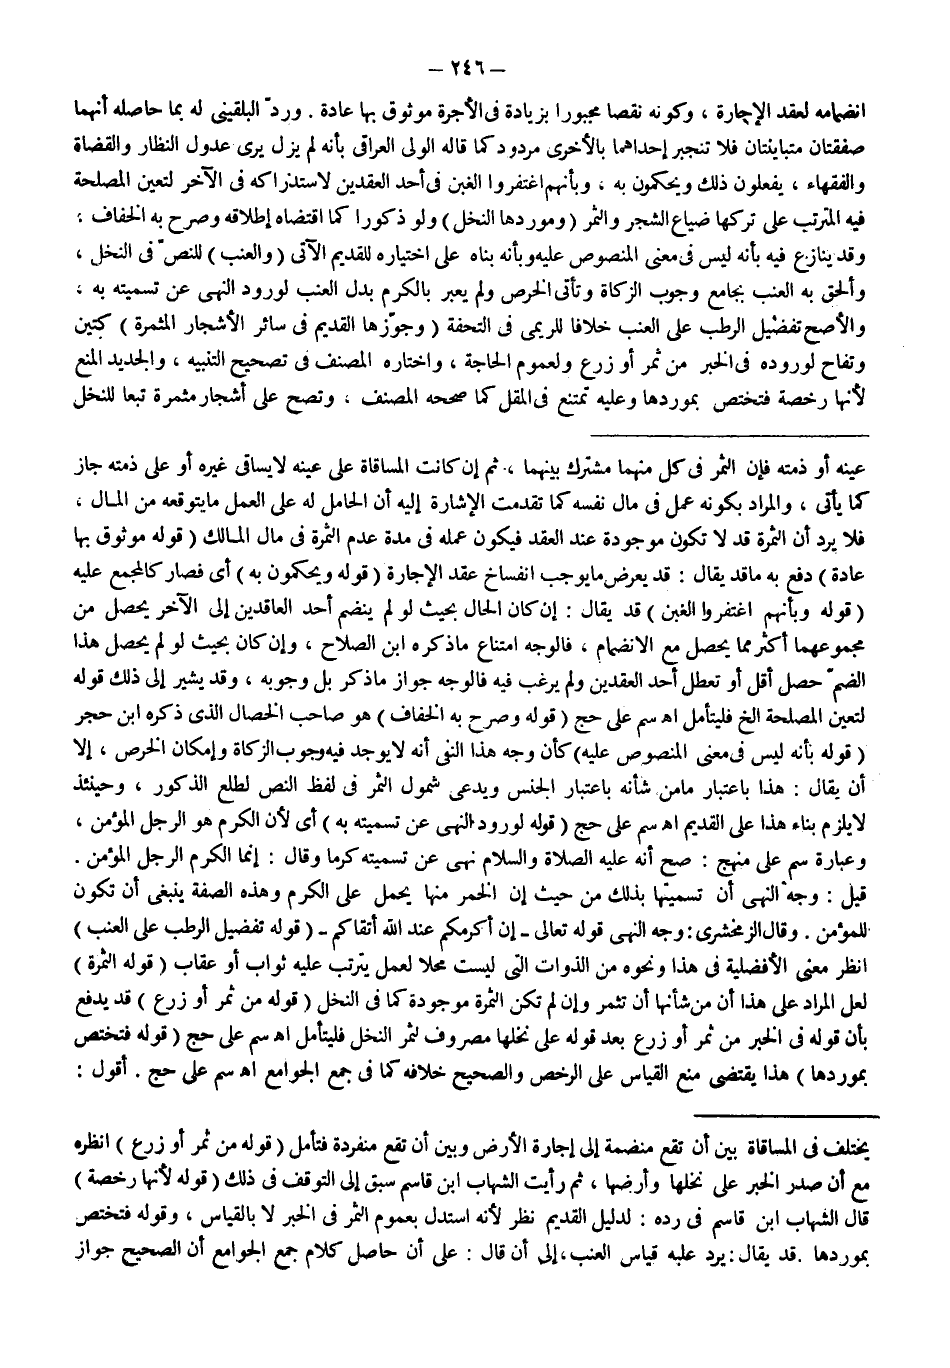 – ٢٤٦ –
انضمامه لعقد الإجارة ، وكونه نقصا مجبورا بزيادة فى الأجرة موثوق بها عادة . وردّ البلقينى له بما حاصله أنهما
صفقتان متباينتان فلا تنجبر إحداهما بالأخرى مردود كما قاله الولى العراقى بأنه لم يزل يرى عدول النظار والقضاة
والفقهاء ، يفعلون ذلك ويحكمون به ، وبأنهم اغتفروا الغبن فى أحد العقدين لاستدراكه فى الآخر لتعين المصلحة
فيه المترتب على تركها ضياع الشجر والثمر ( وموردها النخل ) ولو ذكورا كما اقتضاه إطلاقه وصرح به الخفاف ،
وقد ينازع فيه بأنه ليس فى معنى المنصوص عليه وبأنه بناه على اختياره للقديم الآتى ( والعنب ) للنصّ فى النخل ،
وألحق به العنب بجامع وجوب الزكاة وتأتى الخرص ولم يعبر بالكرم بدل العنب لورود النهى عن تسميته به ،
والأصح تفضيل الرطب على العنب خلافا للريمى فى التحفة ( وجوّزها القديم فى سائر الأشجار المثمرة ) كتين
وتفاح لوروده فى الخبر من ثمر أو زرع ولعموم الحاجة ، واختاره المصنف فى تصحيح التنبيه ، والجديد المنع
لأنها رخصة فتختص بموردها وعليه تمتنع فى المقل كما صححه المصنف ، وتصح على أشجار مثمرة تبعا للنخل
عينه أو ذمته فإن الثمر فى كل منهما مشترك بينهما ، ثم إن كانت المساقاة على عينه لايساقى غيره أو على ذمته جاز
كما يأتى ، والمراد بكونه عمل فى مال نفسه كما تقدمت الإشارة إليه أن الحامل له على العمل مايتوقعه من المال ،
فلا يرد أن الثمرة قد لا تكون موجودة عند العقد فيكون عمله فى مدة عدم الثمرة فى مال المالك ( قوله موثوق بها
عادة ) دفع به ماقد يقال : قد يعرض مايوجب انفساخ عقد الإجارة ( قوله ويحكمون به ) أى فصار كالمجمع عليه
( قوله وبأنهم اغتفروا الغبن ) قد يقال : إن كان الحال بحيث لو لم ينضم أحد العاقدين إلى الآخر يحصل من
مجموعهما أكثر مما يحصل مع الانضمام ، فالوجه امتناع ماذكره ابن الصلاح ، وإن كان بحيث لو لم يحصل هذا
الضمّ حصل أقل أو تعطل أحد العقدين ولم يرغب فيه فالوجه جواز ماذكر بل وجوبه ، وقد يشير إلى ذلك قوله
لتعين المصلحة الخ فليتأمل اه سم على حج ( قوله وصرح به الخفاف ) هو صاحب الخصال الذى ذكره ابن حجر
( قوله بأنه ليس فى معنى المنصوص عليه ) كأن وجه هذا النفى أنه لايوجد فيه وجوب الزكاة وإمكان الخرص ، إلا
أن يقال : هذا باعتبار مامن شأنه باعتبار الجنس ويدعى شمول الثمر فى لفظ النص لطلع الذكور ، وحينئذ
لايلزم بناء هذا على القديم اه سم على حج ( قوله لورود النهى عن تسميته به ) أى لأن الكرم هو الرجل المؤمن ،
وعبارة سم على منهج : صح أنه عليه الصلاة والسلام نهى عن تسميته كرما وقال : إنما الكرم الرجل المؤمن .
قيل : وجه النهى أن تسميتها بذلك من حيث إن الخمر منها يحمل على الكرم وهذه الصفة ينبغى أن تكون
للمؤمن . وقال الزمخشرى : وجه النهى قوله تعالى ـ إن أكرمكم عند الله أتقاكم ـ ( قوله تفضيل الرطب على العنب )
انظر معنى الأفضلية فى هذا ونحوه من الذوات التى ليست محلا لعمل يترتب عليه ثواب أو عقاب ( قوله الثمرة )
لعل المراد على هذا أن من شأنها أن تثمر وإن لم تكن الثمرة موجودة كما فى النخل ( قوله من ثمر أو زرع ) قد يدفع
بأن قوله فى الخبر من ثمر أو زرع بعد قوله على نخلها مصروف لثمر النخل فليتأمل اه سم على حج ( قوله فتختص
بموردها ) هذا يقتضى منع القياس على الرخص والصحيح خلافه كما فى جمع الجوامع اه سم على حج . أقول :
يختلف فى المساقاة بين أن تقع منضمة إلى إجارة الأرض وبين أن تقع منفردة فتأمل ( قوله من ثمر أو زرع ) انظره
مع أن صدر الخبر على نخلها وأرضها ، ثم رأيت الشهاب ابن قاسم سبق إلى التوقف فى ذلك ( قوله لأنها رخصة )
قال الشهاب ابن قاسم فى رده : لدليل القديم نظر لأنه استدل بعموم الثمر فى الخبر لا بالقياس ، وقوله فتختص
بموردها . قد يقال : يرد عليه قياس العنب ، إلى أن قال : على أن حاصل كلام جمع الجوامع أن الصحيح جواز